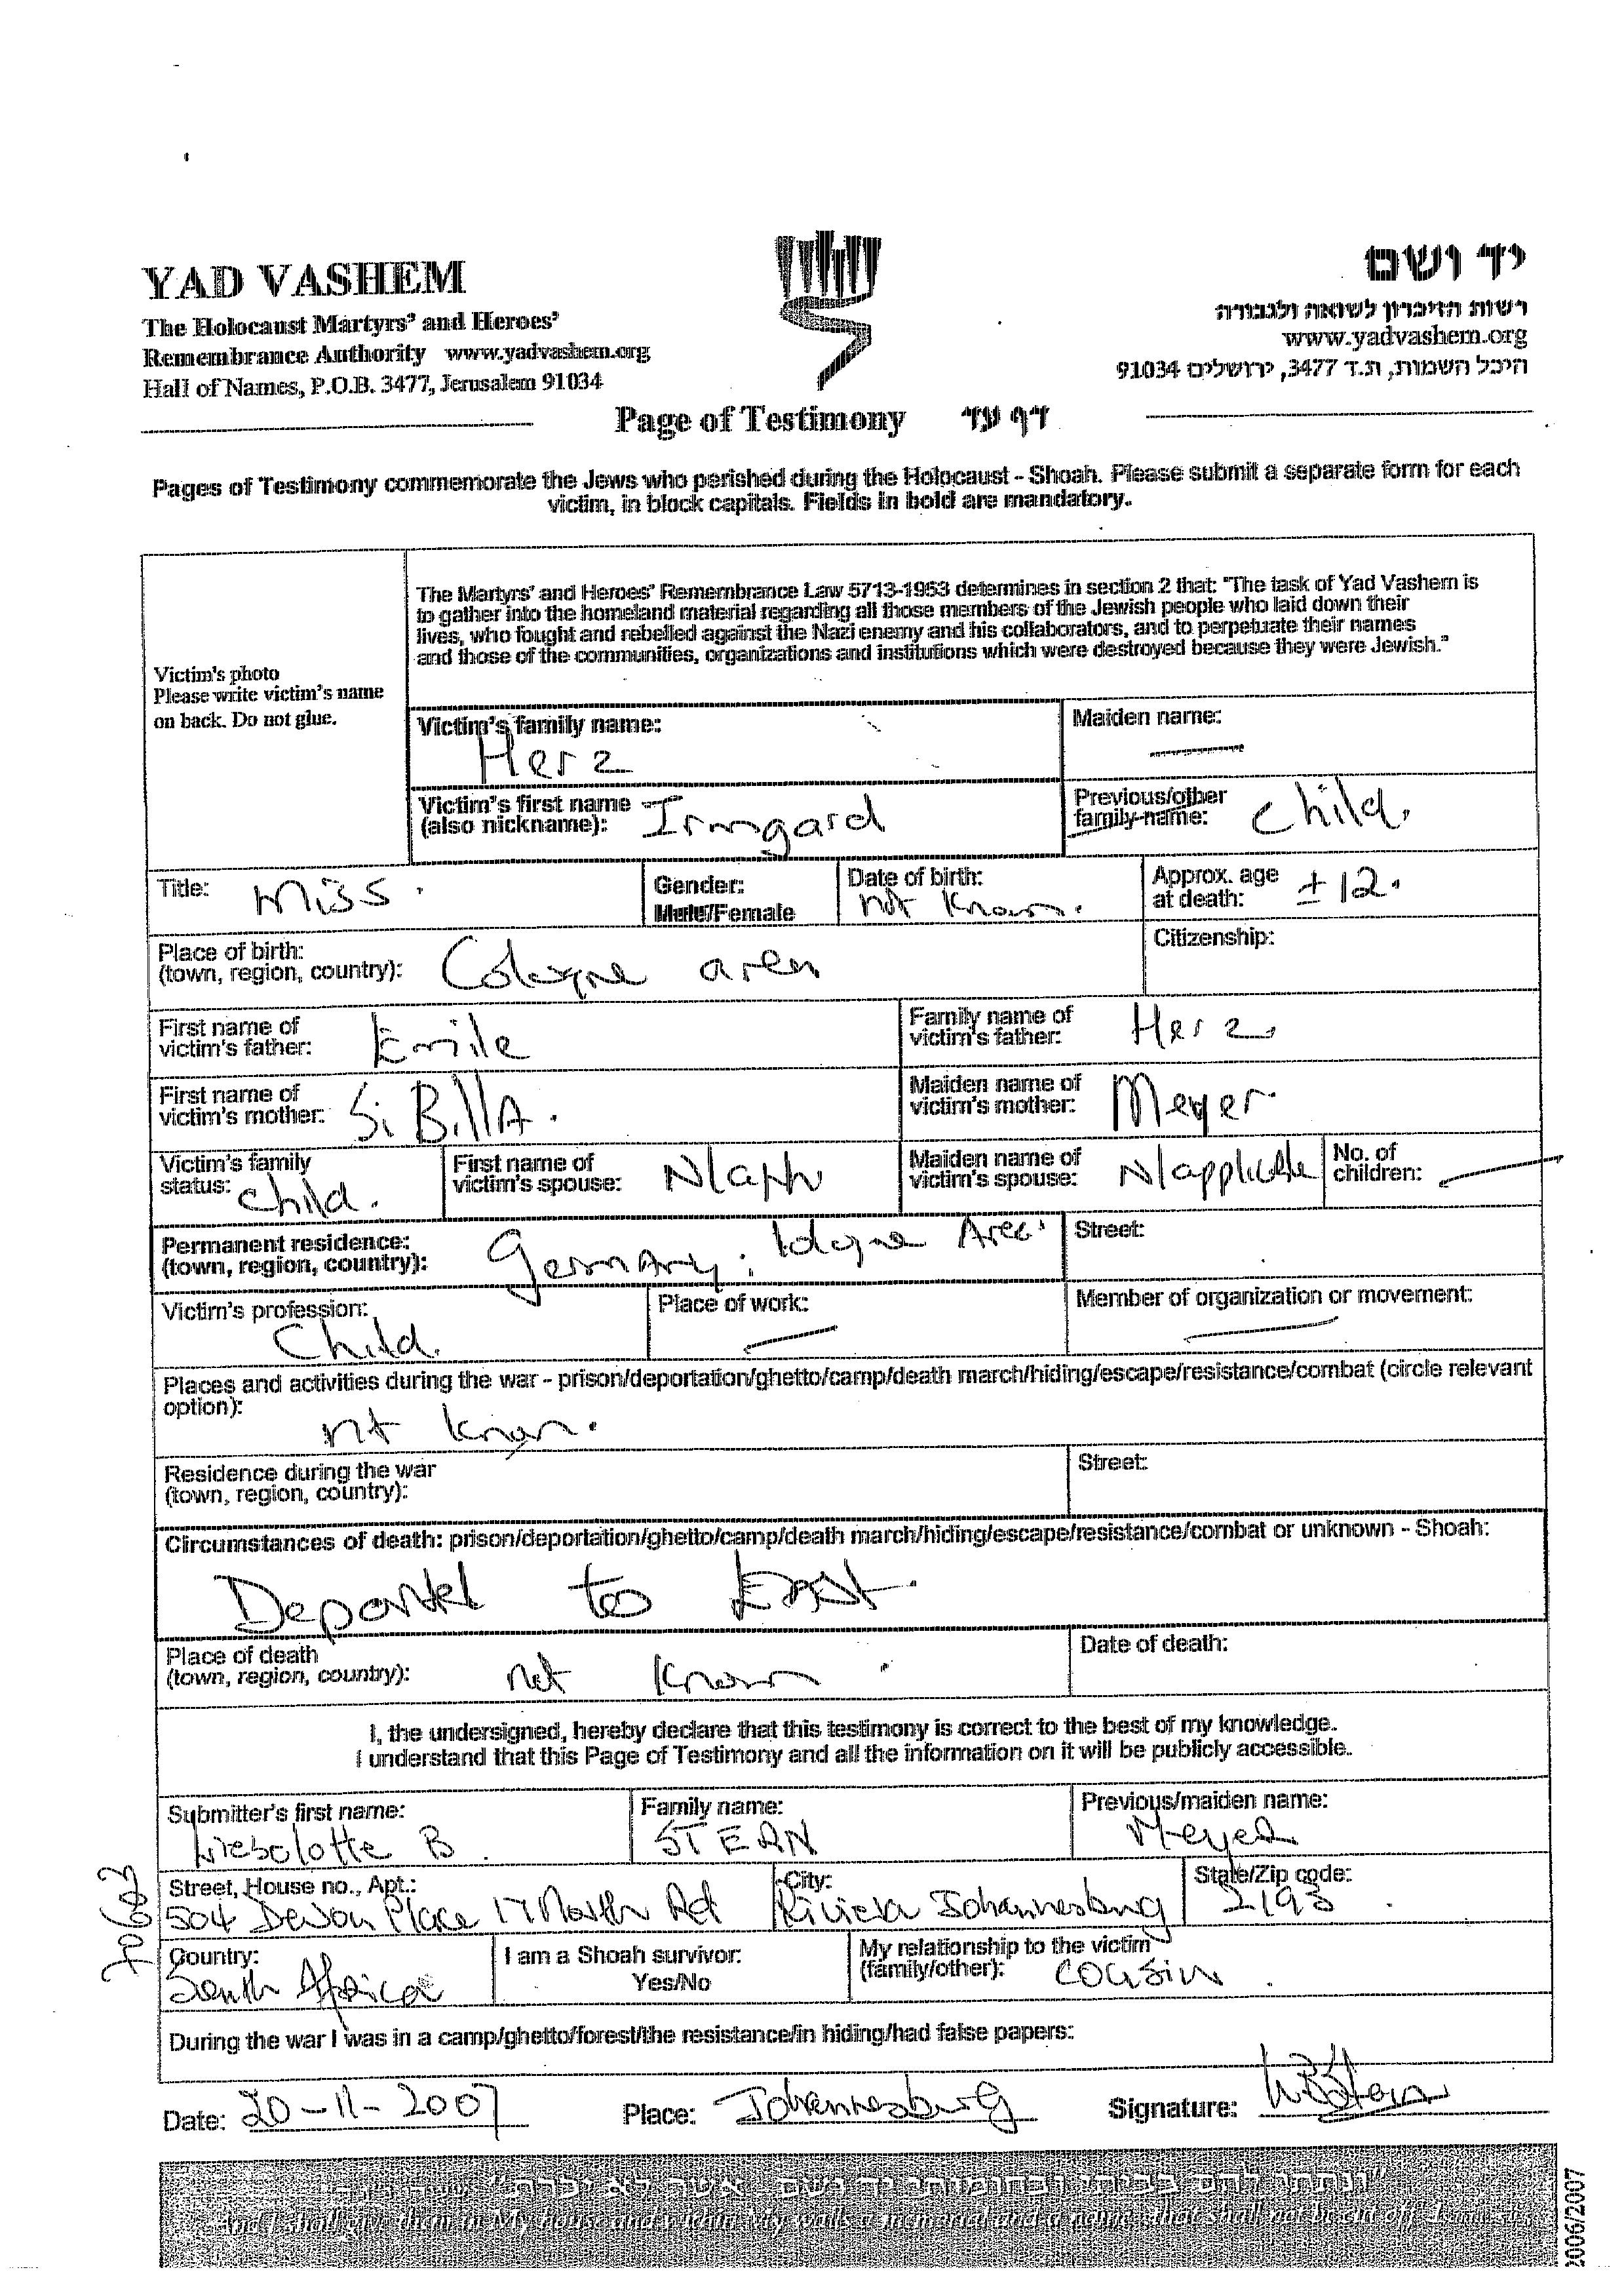 YAD VASHEM
The Holocaust Martyrs' and Heroes'
Remembrance Authority www.yadvashem.org
Hall of Names, P.O.B. 3477, Jerusalem 91034
יד ושם
רשות הזיכרון לשואה ולגבורה
www.yadvashem.org
היכל השמות, ת.ד 3477, ירושלים 91034
Page of Testimony דף עד
Pages of Testimony commemorate the Jews who perished during the Holocaust - Shoah. Please submit a separate form for each
victim, in block capitals. Fields in bold are mandatory.
Victim's photo
Please write victim's name
on back. Do not glue.
The Martyrs' and Heroes' Remembrance Law 5713-1953 determines in section 2 that: "The task of Yad Vashem is
to gather into the homeland material regarding all those members of the Jewish people who laid down their
lives, who fought and rebelled against the Nazi enemy and his collaborators, and to perpetuate their names
and those of the communities, organizations and institutions which were destroyed because they were Jewish."
Victim's family name:
Herz
Maiden name:
Victim's first name
(also nickname): Irmgard
Previous/other
family name: Child.
Title: Miss.
Gender:
Male/Female
Date of birth:
not known.
Approx. age
at death: ± 12.
Place of birth:
(town, region, country): Cologne area
Citizenship:
First name of
victim's father: Emile
Family name of
victim's father: Herz
First name of
victim's mother: SiBillA.
Maiden name of
victim's mother: Meyer.
Victim's family
status: child.
First name of
victim's spouse: N/app
Maiden name of
victim's spouse: N/applicable
No. of
children:
Permanent residence:
(town, region, country): Germany: Cologne Area.
Street:
Victim's profession:
Child.
Place of work:
Member of organization or movement:
Places and activities during the war - prison/deportation/ghetto/camp/death march/hiding/escape/resistance/combat (circle relevant
option):
not known.
Residence during the war
(town, region, country):
Street:
Circumstances of death: prison/deportation/ghetto/camp/death march/hiding/escape/resistance/combat or unknown - Shoah:
Deported to East.
Place of death
(town, region, country): not known.
Date of death:
I, the undersigned, hereby declare that this testimony is correct to the best of my knowledge.
I understand that this Page of Testimony and all the information on it will be publicly accessible.
Submitter's first name:
Lieselotte B.
Family name:
STERN
Previous/maiden name:
Meyer
Street, House no., Apt.:
504 Devon Place 17 North Rd
City:
Riviera Johannesburg
State/Zip code:
2193
Country:
South Africa
I am a Shoah survivor:
Yes/No
My relationship to the victim
(family/other): cousin.
During the war I was in a camp/ghetto/forest/the resistance/in hiding/had false papers:
Date: 20-11-2007
Place: Johannesburg
Signature: LBStern
"ונתתי להם בביתי ובחומותי יד ושם... אשר לא יכרת"
And I shall give them in My house and within My walls a memorial and a name that shall not be cut off.
2006/2007